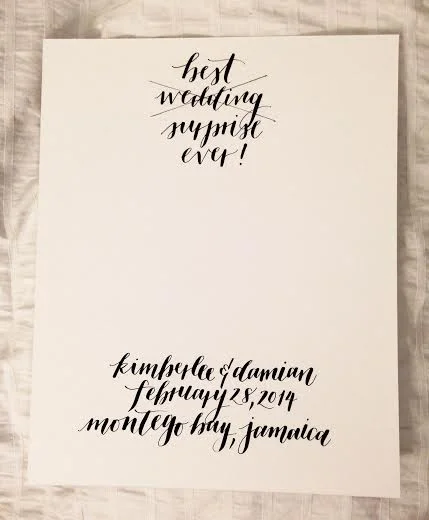 best
wedding
surprise
ever!
kimberlee & damian
february 28, 2014
montego bay, jamaica